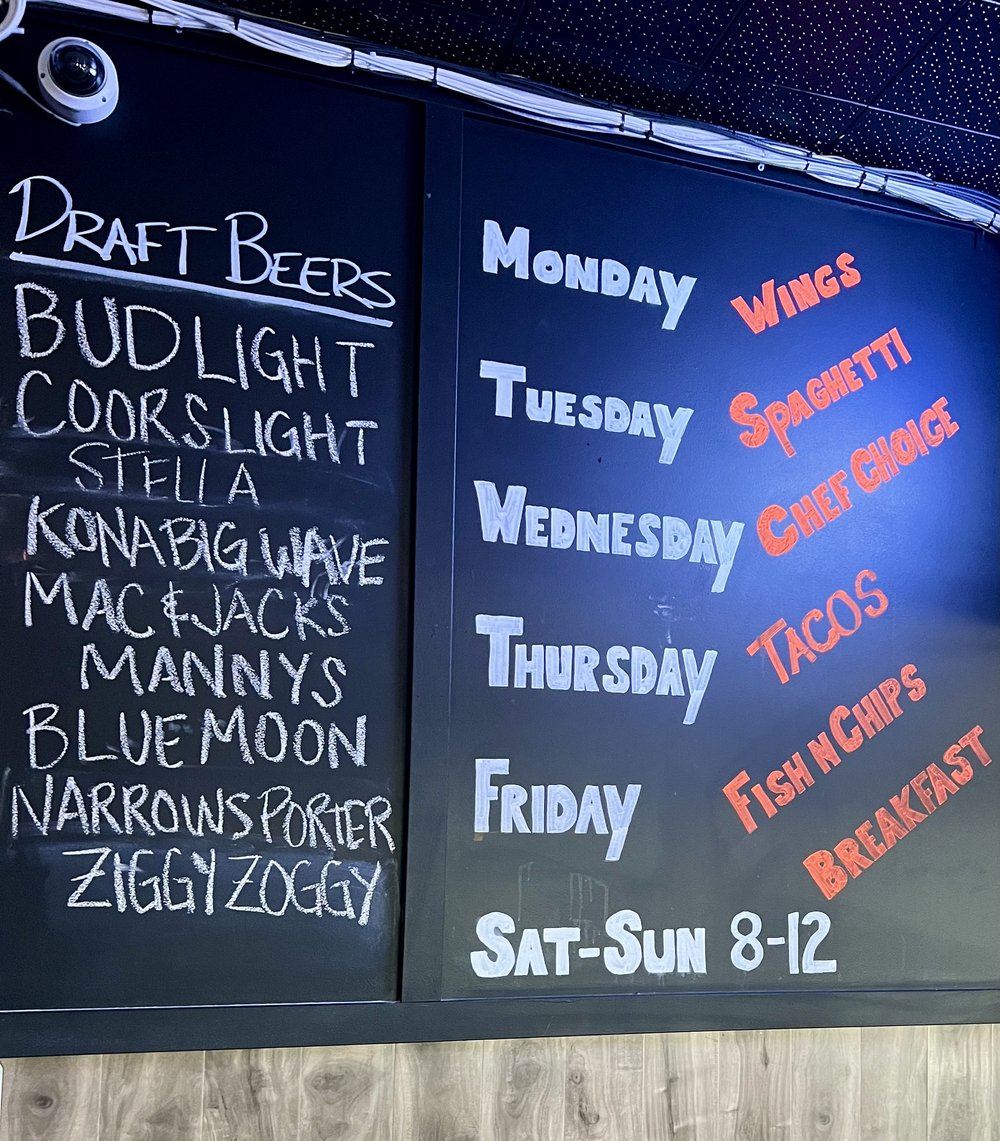 DRAFT BEERS
BUD LIGHT
COORS LIGHT
STELLA
KONA BIG WAVE
MAC & JACKS
MANNYS
BLUE MOON
NARROWS PORTER
ZIGGY ZOGGY
MONDAY WINGS
TUESDAY SPAGHETTI
WEDNESDAY CHEF CHOICE
THURSDAY TACOS
FRIDAY FISH N CHIPS
BREAKFAST
SAT-SUN 8-12